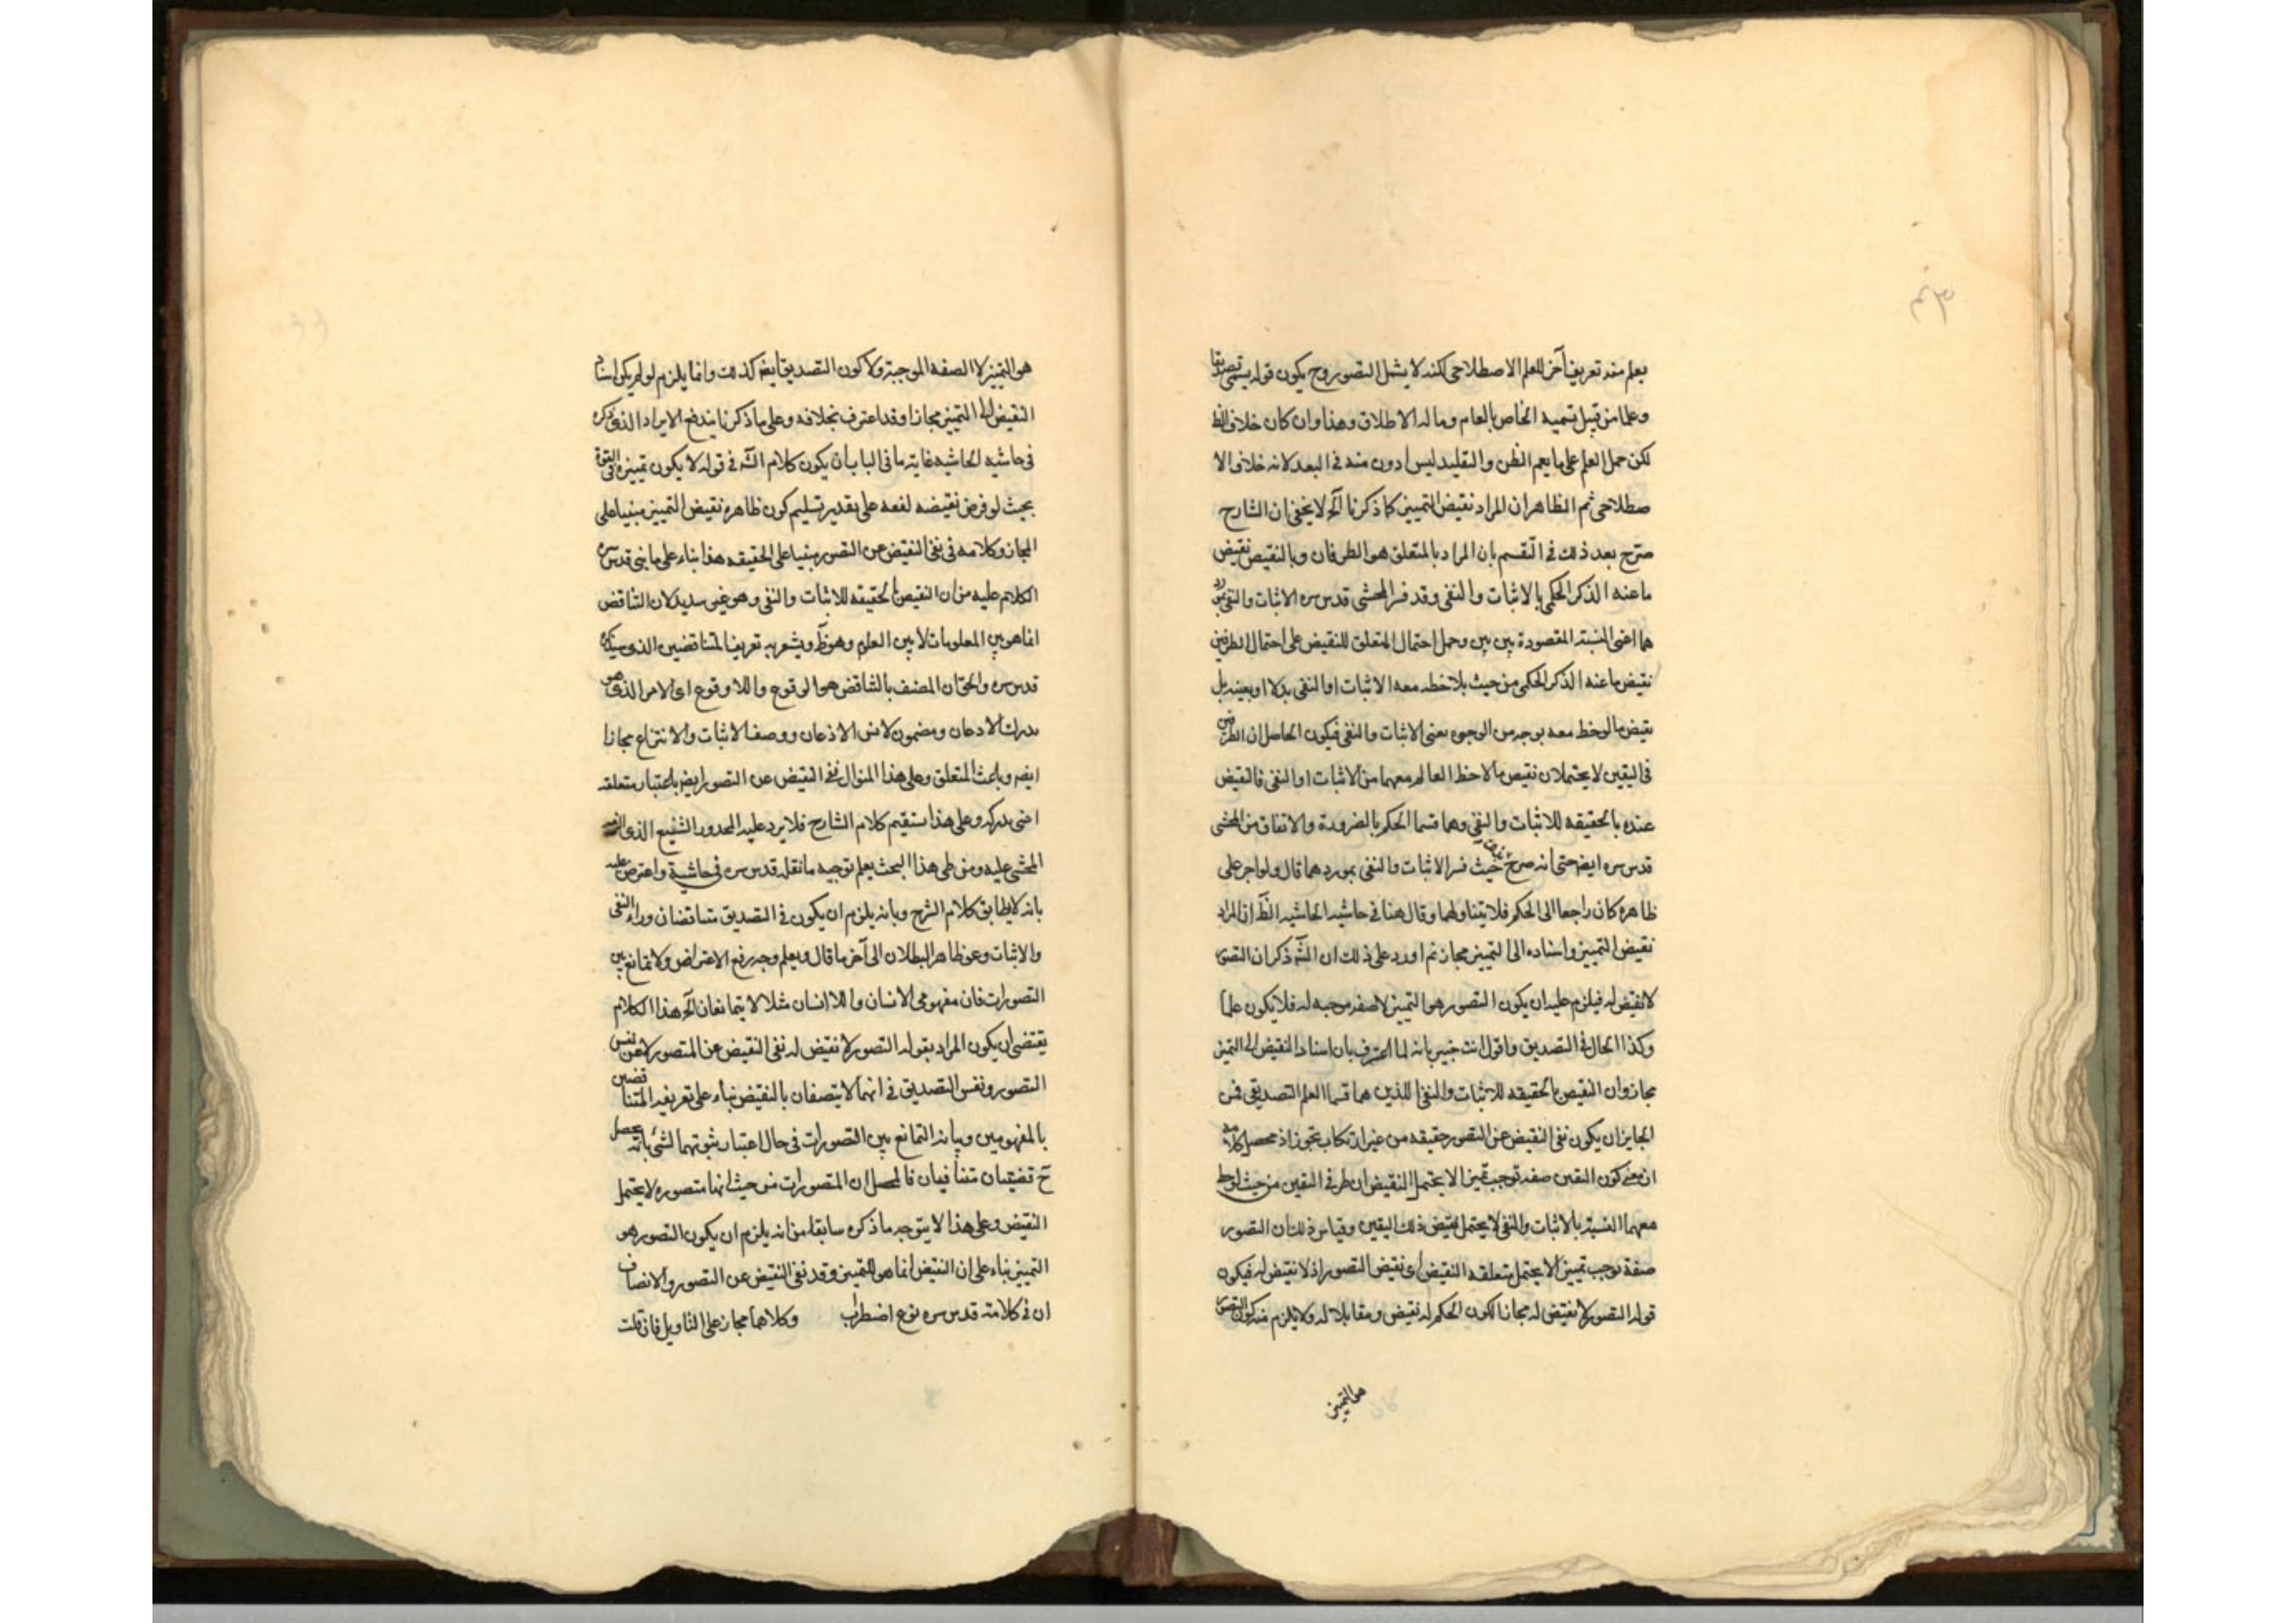 يعلم منه تعريفا آخر للعلم الاصطلاحى لكنه لا يشمل التصور وح يكون قوله يسمى تصديقا
وعلما من قبيل تسميه الخاص بالعام وماله الاطلاق وهذا وان كان خلاف الظ
لكن حمل العلم على ما يعم الظن والتقليد ليس ادون منه فى البعد لانه خلاف الا
صطلاحى ثم الظاهر ان المراد نقيض التمييز كما ذكرنا آلخ لا يخفى ان الشارح
صرّح بعد ذلك فى التقسيم بان المراد بالمتعلق هو الطرفان وبالنقيض نقيض
ما عنه الذكر الحكمى بالاثبات والنفى وقد فسر المحشى قدس سره الاثبات والنفى بمورد
هما اعنى النسبة المقصودة بين بين وحمل احتمال المتعلق للنقيض على احتمال الطرفين
نقيض ما عنه الذكر الحكمى من حيث يلاحظ معه الاثبات او النفى بدلا او بعينه بل
نقيض ما لوحظ معه بوجه من الوجوه يعنى الاثبات والنفى فيكون الحاصل ان الطرفين
فى اليقين لا يحتملان نقيض ما لاحظ العالم معهما من الاثبات او النفى فالنقيض
عنده بالحقيقه للاثبات والنفى وهما قسما الحكم بالضرورة والاتفاق من المحشى
قدس سره ايضا حتى انه صرح حيث فسر الاثبات والنفى بموردهما قال ولو اجر على
ظاهره كان راجعا الى الحكم فلا يتناولهما وقال هنا فى حاشيه الحاشيه الظّ ان المراد
نقيض التمييز واسناده الى التمييز مجاز ثم اورد على ذلك ان الشّه ذكر ان التصور
لا نقيض له فيلزم عليه ان يكون التصور هو التمييز لا صفه موجبه له فلا يكون علما
وكذا الحال فى التصديق واقول انت خبير بانه لما اعترف بان اسناد النقيض الى التمييز
مجاز وان النقيض بالحقيقه للاثبات والنفى اللذين هما قسما العلم التصديقى فمن
الجايز ان يكون نفى النقيض عن التصور حقيقه من غير ارتكاب تجوز اذ محصل كلامه
ان معنى كون اليقين صفه توجب تمييزا لا يحتمل النقيض ان طرفى اليقين من حيث لوحظ
معهما النسبة بالاثبات والنفى لا يحتمل نقيض ذلك اليقين وقياس ذلك ان التصور
صفة توجب تمييزا لا يحتمل متعلقه النقيض اى نقيض التصور اذ لا نقيض له فيكون
قوله التصور لا نقيض له مجازا لكون الحكم له نقيض ومقابلا له ولا يلزم منه كون التصور
هو التمييز
هو التمييز لا الصفه الموجبة ولا كون التصديق ايضا كذلك وانما يلزم لو لم يكن اسناد
النقيض الى التمييز مجازا وقد اعترف بخلافه وعلى ما ذكرنا يندفع الايراد الذى ذكره
فى حاشيه الحاشيه غاية ما فى الباب ان يكون كلام الشّه فى قوله لا يكون تمييزه فى القوة
بحيث لو فرض نقيضه لفعه على تقدير تسليم كون ظاهره نقيض التمييز مبنيا على
المجاز وكلامه فى نفى النقيض عن التصور مبنيا على الحقيقه هذا بناء على ما بنى قدس سره
الكلام عليه من ان النقيض بالحقيقه للاثبات والنفى وهو غير سديد لان التناقض
انما هو بين المعلومات لا بين العلوم وهو ظّ ويشعر به تعريف المتناقضين الذى سيذكره
قدس سره والحق ان المتصف بالتناقض هو الوقوع واللا وقوع اى الامر الذى هو
مدرك الاذعان ومضمون لا نفس الاذعان ووصف الاثبات والانتزاع مجازا
ايضه وباعث المتعلق وعلى هذا المنوال نفى النقيض عن التصور ايضا باعتبار متعلقه
اعنى مدركه وعلى هذا استقيم كلام الشارح فلا يرد عليه المحذور الشنيع الذى
المحشى عليه ومن طى هذا البحث يعلم توجيه ما نقله قدس سره فى حاشية واعترض عليه
بانه لا يطابق كلام الشرح وبانه يلزم ان يكون فى التصديق متناقضان وراء النفى
والاثبات وهو ظاهر البطلان الى آخر ما قال ويعلم وجه رفع الاعتراض ولا تمانع بين
التصورات فان مفهومى الانسان واللاانسان مثلا لا يتمانعان آلخ هذا الكلام
يقتضى ان يكون المراد بقوله التصور لا نقيض له نفى النقيض عن المتصور لا عن نفس
التصور ونفس التصديق فى انهما لا يتصفان بالنقيض بناء على تعريفه المتناقضين
بالمفهومين وبيانه التمانع بين التصورات فى حال اعتبار ثبوتهما لشئ بانه يحصل
حّ قضيتان متنافيان فالمحصل ان المتصورات من حيث انها متصوره لا يحتمل
النقيض وعلى هذا لا يتوجه ما ذكره سابقا من انه يلزم ان يكون التصور هو
التمييز بناء على ان النقيض انما هو للتمييز وقد نفى النقيض عن التصور والانصاف
ان فى كلامه قدس سره نوع اضطراب وكلاهما مجاز على التاويل فان قلت